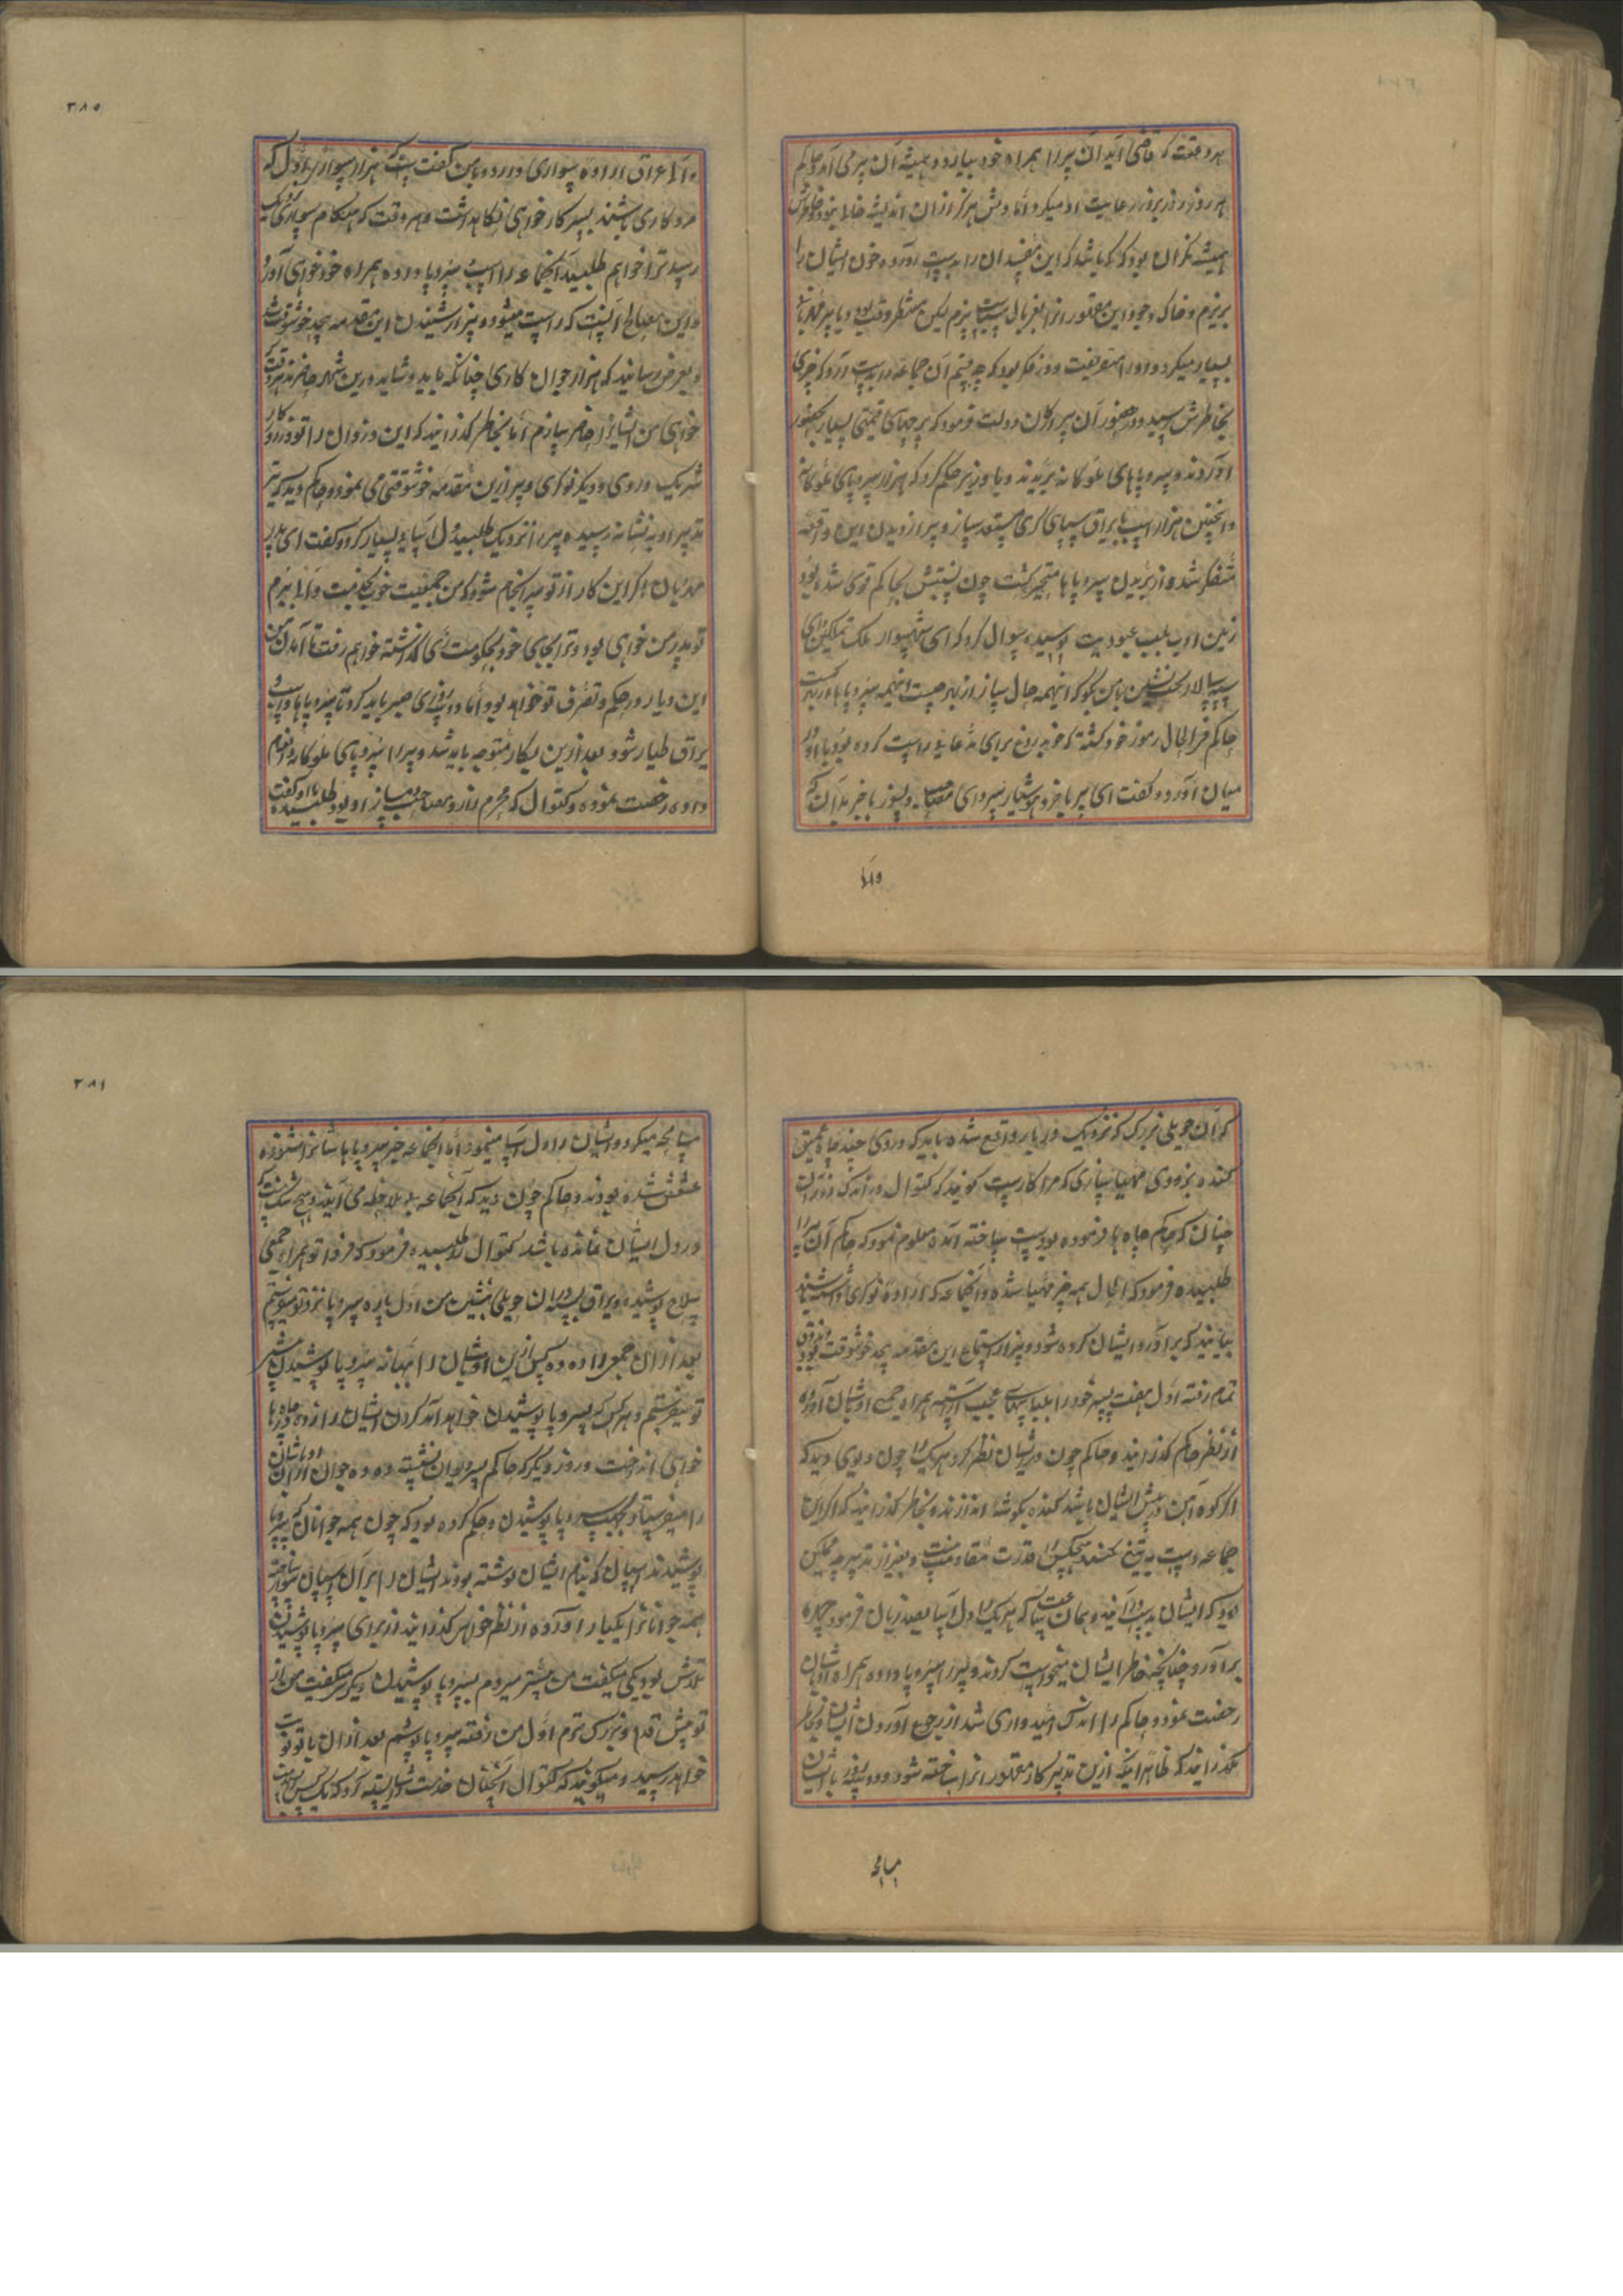 هر وقت که قاضی آید آن پیر را همراه خود بیارد و همیشه آن پیر می آمد و حاکم
هر روز روز بروز رعایت او میکرد اما دلش هرگز از ان اندیشه خالی نبود و خاطرش
همیشه نگران بود که کی باشد که این مفسدان را بدست آورده خون ایشان را
بریزم و خاک وجود این مقهوران را بغربال سیاست بیزم لیکن منتظر وقت بود و با پیر
بسیار میکرد و او را میفریفت و در فکر بود که چه سازم آن جماعه را بدست آرد که چیزی
بخاطرش رسید و در حضور آن پیر ارکان دولت فرمود که پرچهای قیمتی بسیار بحضور
آوردند و سر و پاهای ملوکانه بریدند و با وزیر حکم کرد که هزار سر و پای ملوکانه
و همچنین هزار اسپ با یراق سپاهی گری مستعد سازد و پیر از دیدن این واقعه
متفکر شده از بریدن سر و پاها متحیر گشت چون پشتش بحاکم قوی شده بود
زمین ادب بلب عبودیت بوسیده سوال کرد که ای شهسوار ملک تمکین و ای
سپه سالار تخت نشین با من بگو که اینهمه حال ساز از بهر چیست و اینهمه سر و پاها از بهر کیست
حاکم فی الحال رموز خود گشته که خود دروغ برای مدعا یاد راست کرده بود با او در
میان آورد و گفت ای پیر با خرد هوشیار سردار مصاحب دلسوز با خبر بدان که
والی
۳۸۵
والی عراق اراده سواری دارد و با من گفت است که هزار سوار پر دل که
مرد کاری باشند بسر کار خواهی نگاهداشت و هر وقت که هنگام سواری
رسید ترا خواهم طلبید آنجماعه را اسپ و سر و پا داده همراه خود خواهی آورد
و این مصالح آنست که راست میشود و پیر از شنیدن این مقدمه بیحد خوشوقت شد
و بعرض رسانید که هزار جوان کاری چنانکه باید و شاید درین شهر حاضرند هر وقت که
خواهی من ایشانرا حاضر سازم اما بخاطر گذرانید که این دزدان را تو در کار
شریک دزدی و دیگر نوکری و پیر ازین مقدمه خوشوقتی می نمود و حاکم دید که تیر
تدبیر او به نشانه رسیده پیر را نزدیک طلبید دل آسای بسیار کرد و گفت ای پدر
مهربان اگر این کار از تو سرانجام شود که من جمعیت خوب بخدمت والی ببرم
تو پدر من خواهی بود و ترا بجای خود بحکومت ری گذاشته خواهم رفت تا آمدن من
این دیار در حکم و تصرف تو خواهد بود اما دو سه روزی صبر باید کرد تا سر و پاها و اسپ و
یراق طیار شود بعد ازین بیکار متوجه باید شد و پیر را سر و پای ملوکانه و انعام
داده رخصت نموده و کتوال که محرم راز و مصاحب دمساز او بود طلبیده با او گفت
که آن حویلی بزرگ که نزدیک دریا واقع شده باید که در وی چند چاه عمیق
کنده بزودی مهیا سازی که مرا کار است گویند که کتوال در اندک روزی
چنان که حاکم چاه ها فرموده بود راست ساخته آمده معلوم نمود که حاکم آن پیر را
طلبیده فرمود که الحال همه چیز مهیا شده و آنجماعه که اراده نوکری داشته باشند
بیایند که برآورد ایشان کرده شود و پیر از استماع این مقدمه بیحد خوشوقت بود
تمام رفته اول هفت پسر خود را بلباسهای عجیب آراسته همراه جمعی اوباشان آورده
از نظر حاکم گذرانید و حاکم چون در ایشان نظر کرد هر یک را چون دیوی دید که
اگر کوه آهن در پیش ایشان باشد کنده بگوشه اندازند و بخاطر گذرانید که اگر این
جماعه دست به تیغ کنند هیچکس را قدرت مقاومت نیست و بغیر از تدبیر چه ممکن
بود که ایشان بدست آیند و همان ساعت که هر یک را دل آسا بصد زبان فرمود چهره
برآورد چنانچه خاطر ایشان میخواست کردند و پیر را سر و پا داده همراه اوباشان
رخصت نمود و حاکم را اندک امیدواری شد از رجوع آوردن ایشان و بخاطر
بگذرانید که ظاهرا اینکه ازین تدبیر کار مقهوران ساخته شود و دو سه روز با ایشان
مبالغه
۳۸۶
مبالغه میکرد و ایشان را دل آسا مینمود اما آنجماعه خبر سر و پاها شانرا شنوده
عشعش شده بودند و حاکم چون دید که آنجماعه بلا ملاحظه می آیند و هیچ شک
در دل ایشان نمانده باشد کتوال را طلبیده فرمود که فردا تو همراه جمعی
سلاح پوشیده و یراق بسته در ان حویلی بنشین من اول پاره سر و پا نزد تو میفرستم
بعد از ان جمعی را ده ده کس ازین اوباشان را بهانه سر و پا پوشیدن پیش
تو میفرستم و هر کس که بسر و پا پوشیدن خواهد آمد گردن ایشان را زده در چاه ها
خواهی انداخت و روز دیگر که حاکم بر دیوان نشسته ده ده جوان از ان اوباشان
را میفرستاد بجهت سر و پا پوشیدن و حکم کرده بود که چون همه جوانان سر و پا
پوشیدند اسپان که بنام ایشان نوشته بودند ایشان را بر آن اسپان سوار ساخته
همه جوانانرا یکبار آورده از نظر خواهی گذرانید و از برای سر و پا پوشیدن
تلاش بود یکی میگفت من پیشتر میروم بسر و پا پوشیدن دیگر میگفت من از
تو پیش قدم و بزرگ ترم اول من رفته سر و پا پوشم بعد از ان با تو نوبت
خواهد رسید و میگویند که کتوال آنچنان خدمت شایسته کرد که یک کس